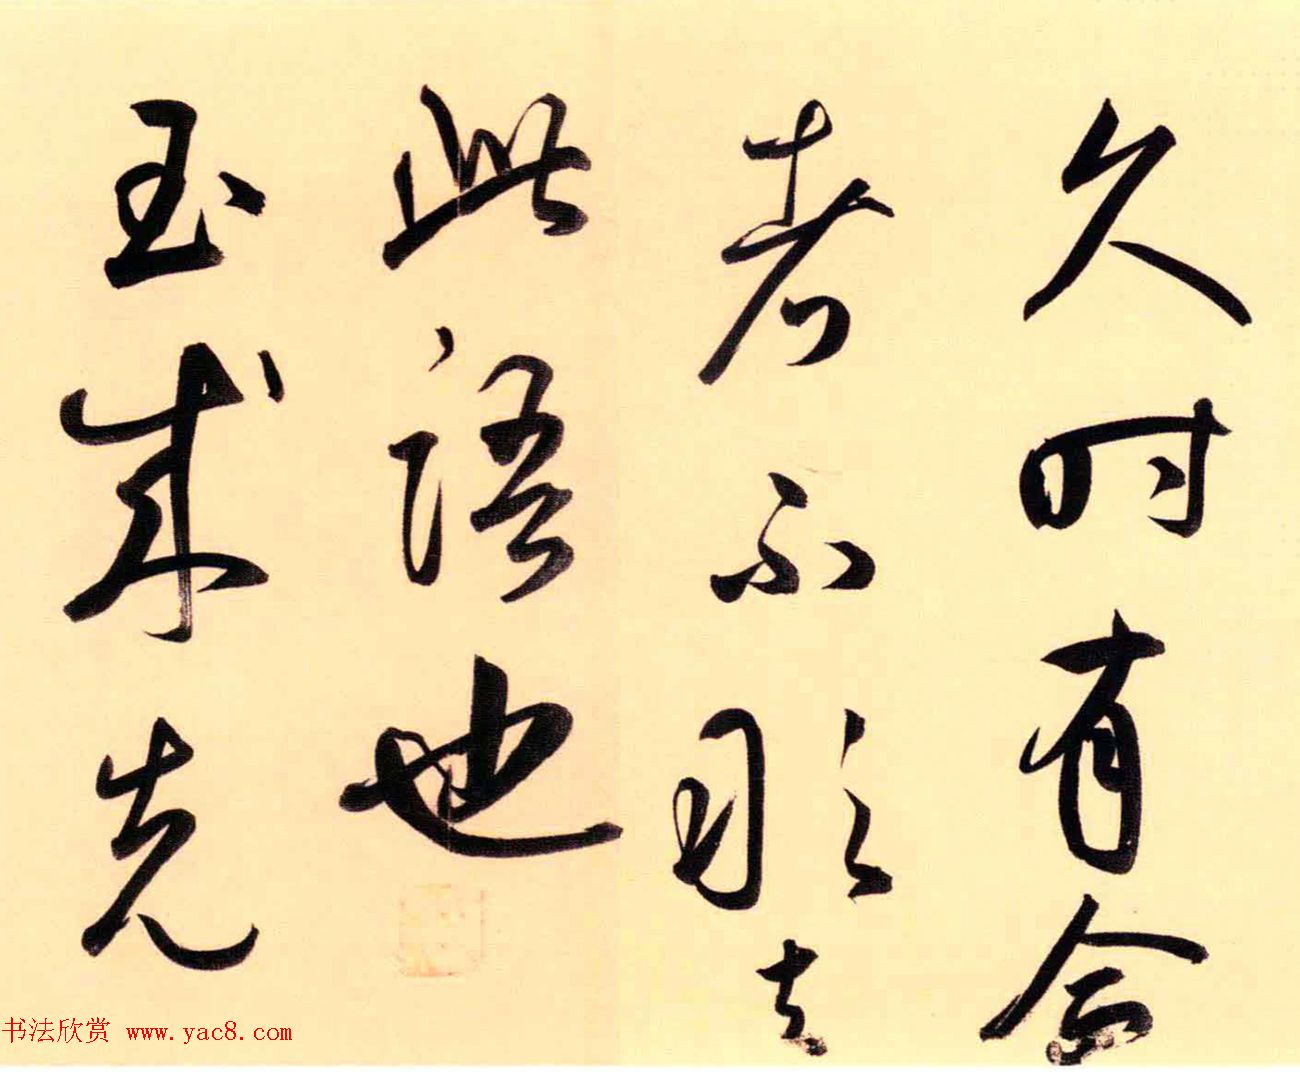 久时有合
者不能去
此语也
玉成先
书法欣赏 www.yac8.com